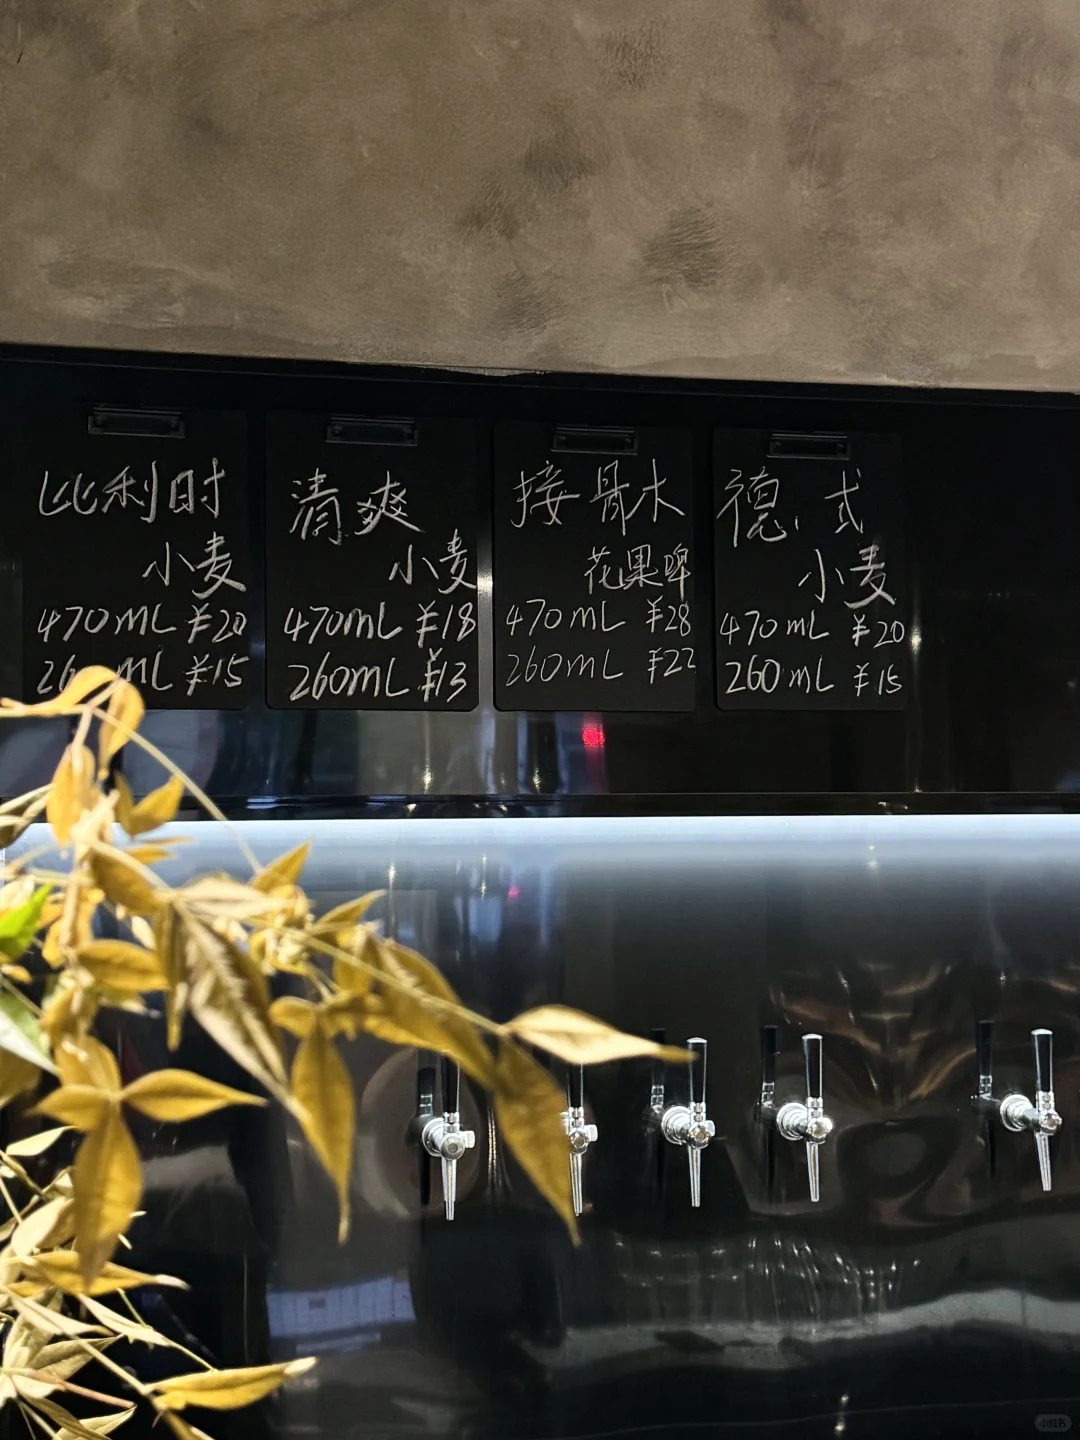 比利时
小麦
470mL ¥20
260mL ¥15
清爽
小麦
470mL ¥18
260mL ¥13
接骨木
花果啤
470mL ¥28
260mL ¥22
德式
小麦
470mL ¥20
260mL ¥15
小红书